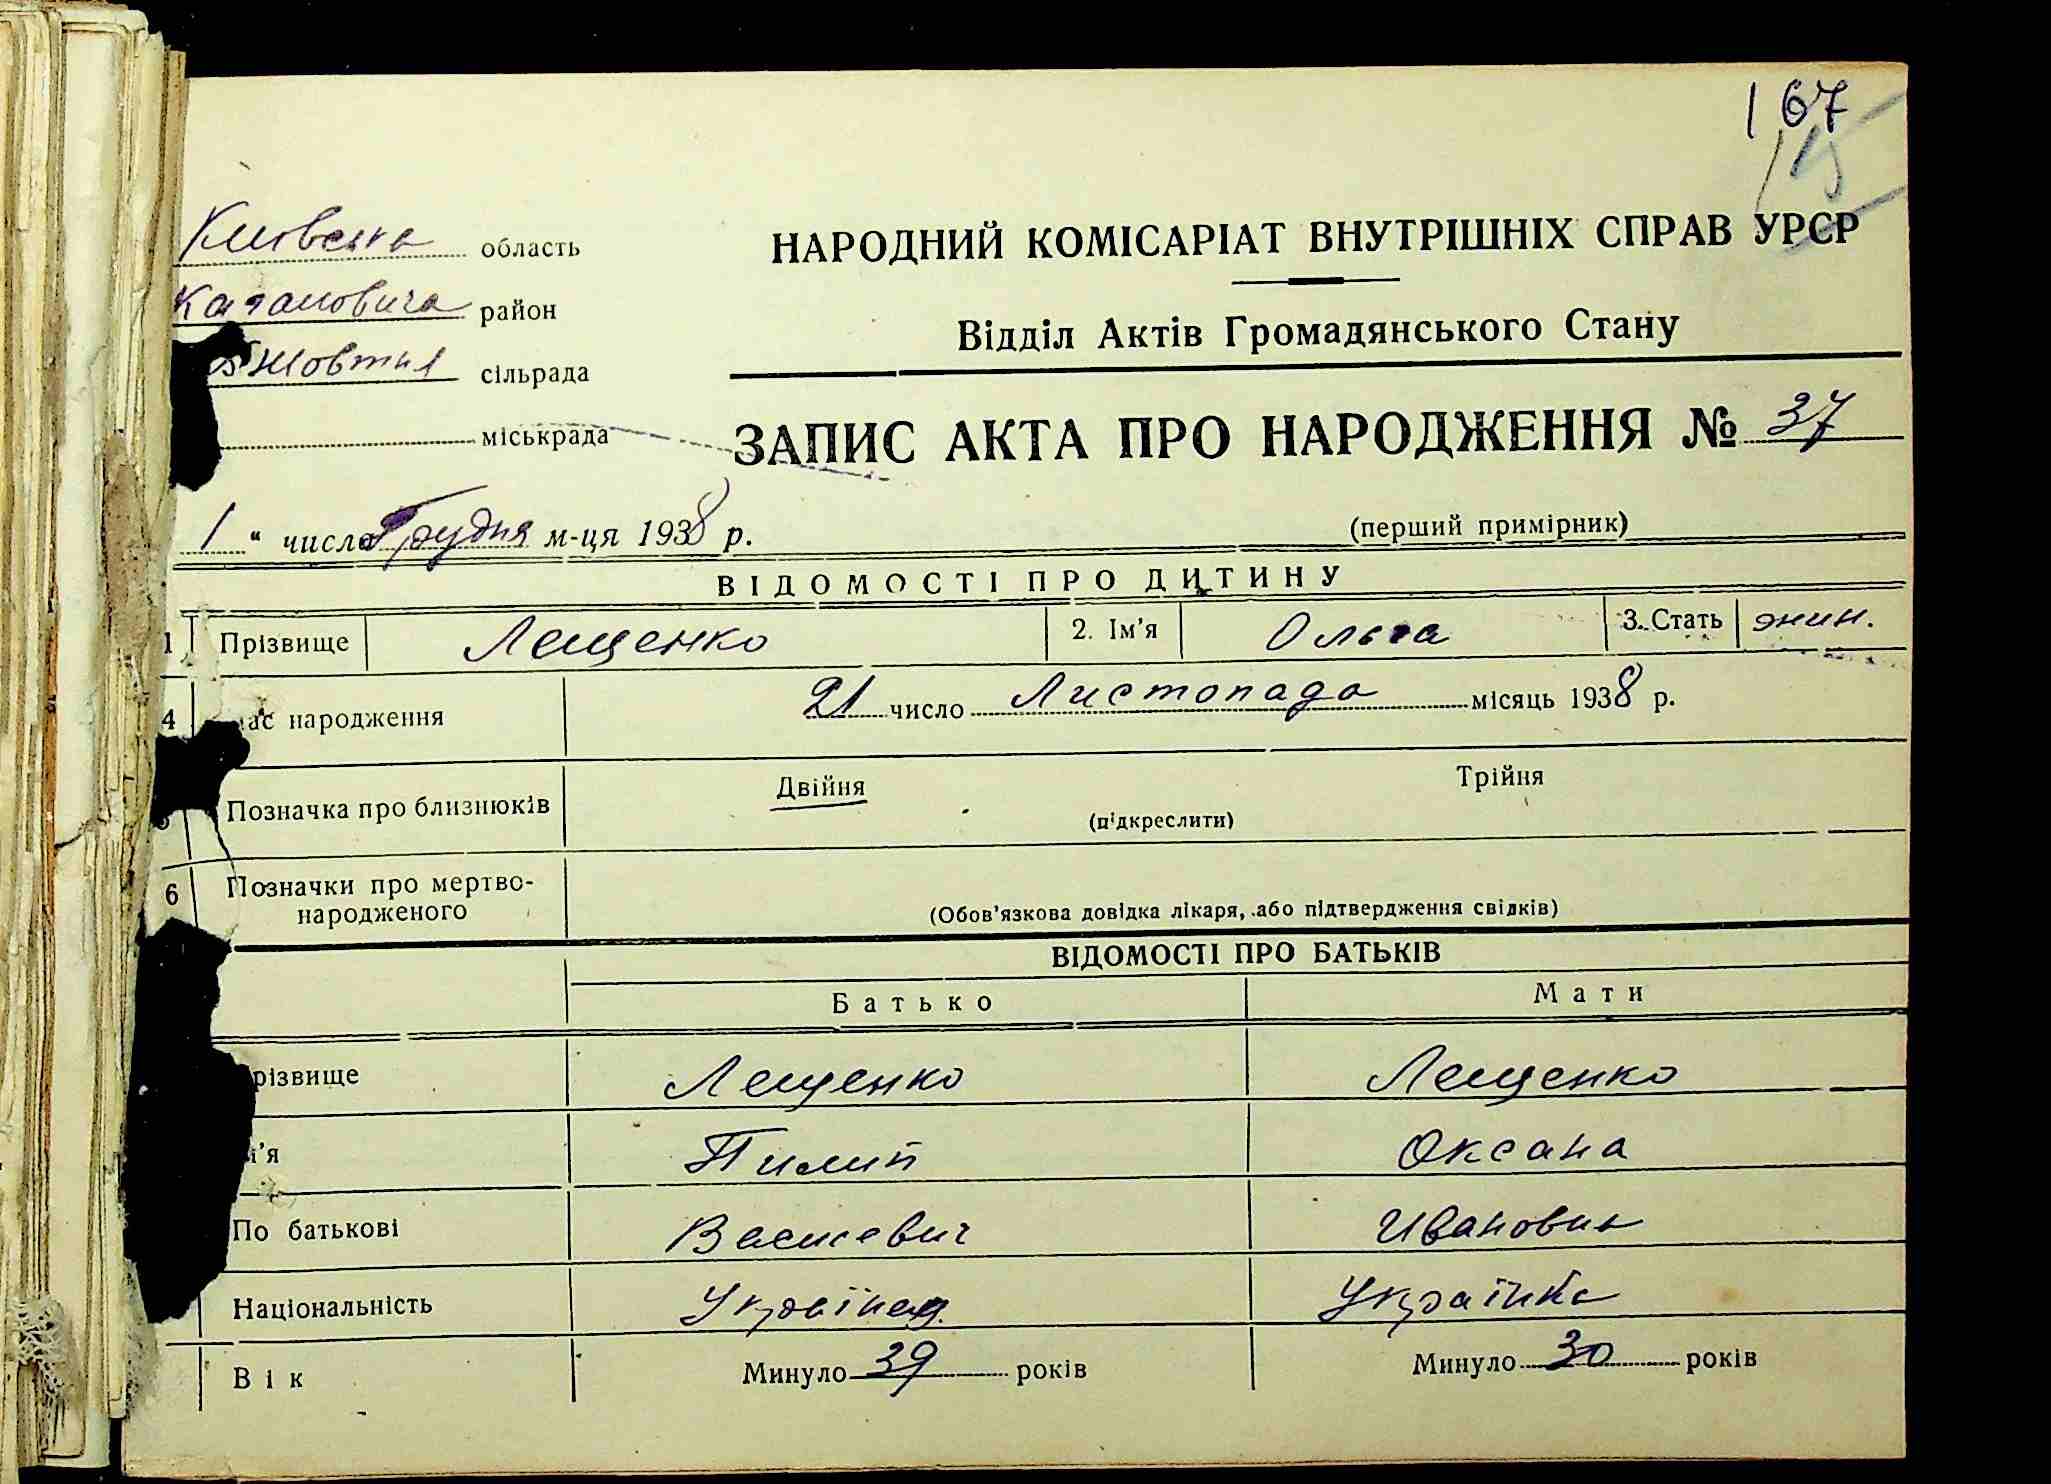 167
15
Київська область
Кагановича район
Жовтня сільрада
міськрада
НАРОДНИЙ КОМІСАРІАТ ВНУТРІШНІХ СПРАВ УРСР
Відділ Актів Громадянського Стану
ЗАПИС АКТА ПРО НАРОДЖЕННЯ № 37
1 " число Грудня м-ця 1938 р.
(перший примірник)
ВІДОМОСТІ ПРО ДИТИНУ
1 Прізвище Лещенко 2. Ім'я Ольга 3. Стать жін.
4 час народження 21 число Листопада місяць 1938 р.
Позначка про близнюків Двійня Трійня
(підкреслити)
6 Позначки про мертво-
народженого
(Обов'язкова довідка лікаря, або підтвердження свідків)
ВІДОМОСТІ ПРО БАТЬКІВ
Батько Мати
різвище Лещенко Лещенко
м'я Пилип Оксана
По батькові Ивановна
Національність Українец Українка
Вік Минуло 39 років Минуло 30 років